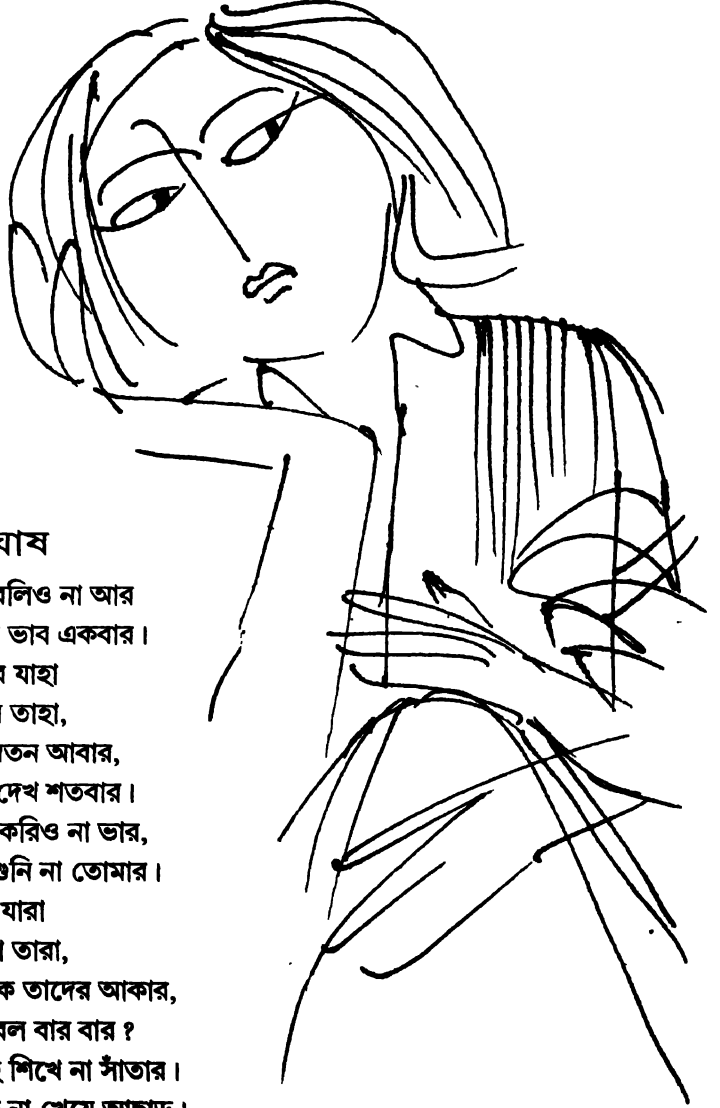 বলিও না আর
ভাব একবার।
যাহা
তাহা,
যতন আবার,
দেখ শতবার।
করিও না ভার,
শুনি না তোমার।
যারা
তারা,
তাদের আকার,
বল বার বার?
শিখে না সাঁতার।
না খেয়ে আছাড়।